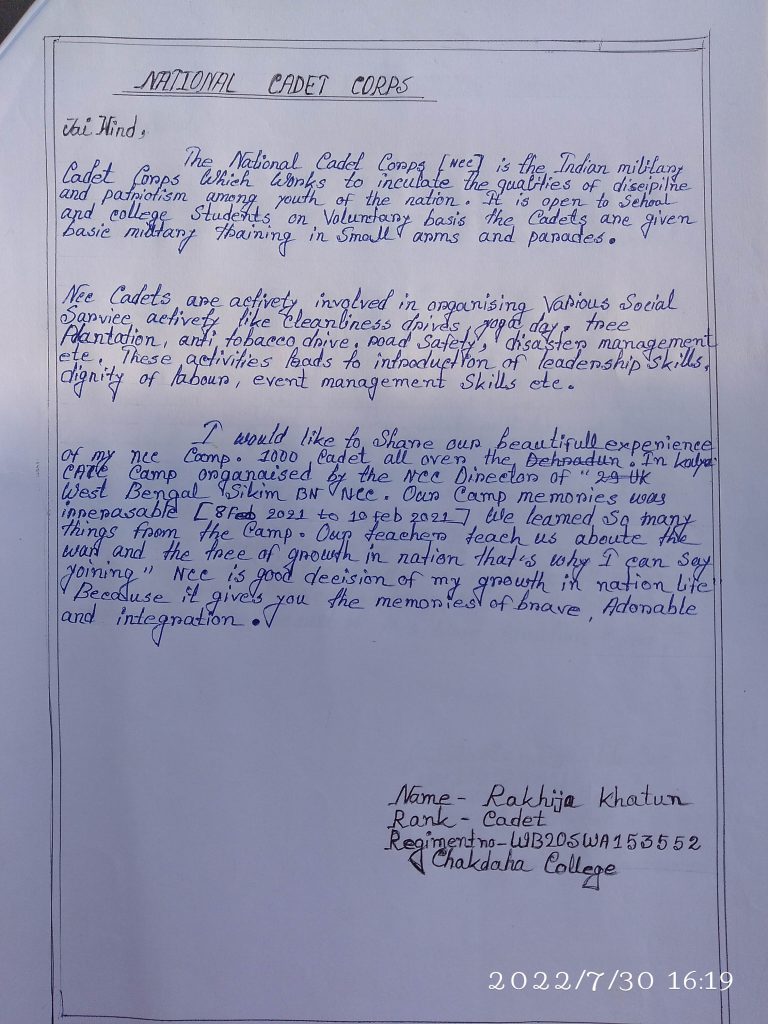 NATIONAL CADET CORPS
Jai Hind,
The National Cadet Corps [NCC] is the Indian military
Cadet Corps Which Works to inculate the qualities of discipline
and patriotism among youth of the nation. It is open to School
and college Students on Voluntary basis the Cadets are given
basic military training in Small arms and parades.
Ncc Cadets are activety involved in organising Various Social
Sarvice activety like cleanliness drives, yoga day, tree
Plantation, anti tobacco drive, road Safety, disaster management
etc. These activities leads to introduction of leadership Skills,
dignity of labour, event management Skills etc.
I would like to Share our beautifull experience
of my ncc Camp. 1000 Cadet all over the Dehradun. In
CATC Camp organaised by the NCC Director of "29 UK
West Bengal Sikim BN NCC. Our Camp memories was
inrerasable [8 Feb 2021 to 10 feb 2021] We learned So many
things from the Camp. Our teachers teach us aboute the
war and the tree of growth in nation that's why I can Say
joining" Ncc is good decision of my growth in nation life
Because it gives you the memories of brave, Adorable
and integration.
Name - Rakhija Khatun
Rank - Cadet
Regiment no - WB20SWA153552
Chakdaha College
2022/7/30 16:19